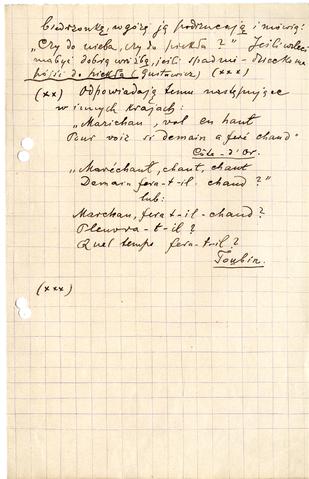 biedronkę, w górę ją podrzucają i mówią:
„Czy do nieba, czy do piekła?" Jeśli wzleci
ma być dobrą wróżbą, jeśli spadnie - dziecko ma
pójść do piekła (Gustawicz) (xxx)
(xx) Odpowiadają temu następujące
w innych krajach:
„Marichau, vol en haut
Pour voir si demain a feré chaud"
Côte-d'Or.
„Maréchaut, chaut, chaut
Demain fera-t-il-chaud?"
lub:
Marchau, fera-t-il-chaud?
Pleuvra-t-il?
Quel temps fera-t-il?
Toubin.
(xxx)